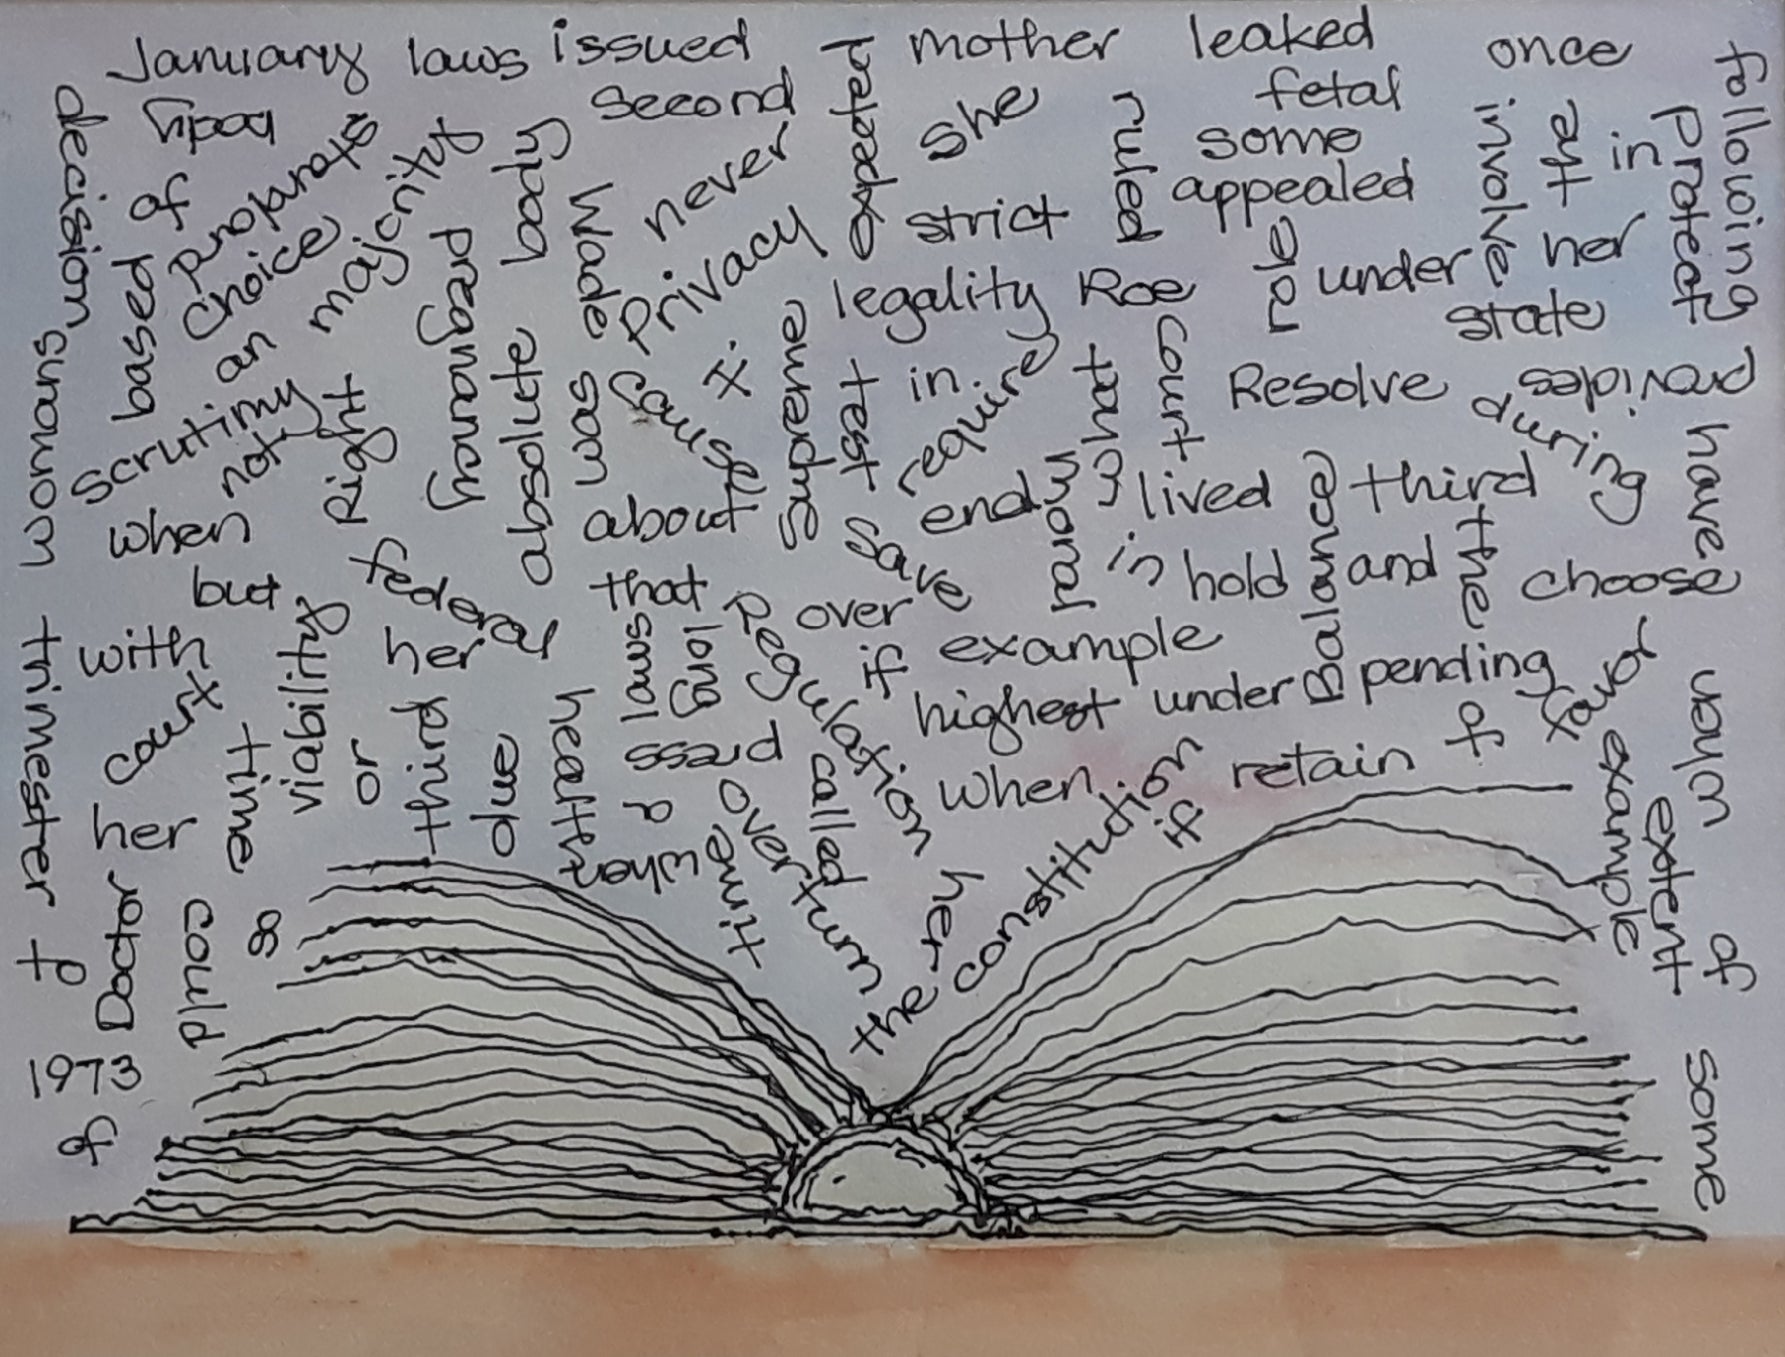 January laws issued mother leaked once
following
decisions
body
second
retedxo
she
ruled
fetal
some
appealed
involve
the
in
protect
of
based
prohibits
choice
majority
an
pregnancy
body
absolute
Wade
was
never
privacy
strict
legality Roe
role
under
her
state
womans
scrutimy
not
Right
Clause
it
Supreme
test
in
require
what
court
Resolve
provides
during
have
when
but
federal
about
that
save
end
lived
third
moral
in
hold
Balance
and
the
choose
trimester
with
court
viability
her
laws
long
Regulation
over
if
example
highest
under
pending
favor
when
time
or
third
due
health
pass
a
when
called
when
constitution
if
retain
of
example
extent
of
her
Doctor
could
so
time
overturn
the
her
of
1973
of
some